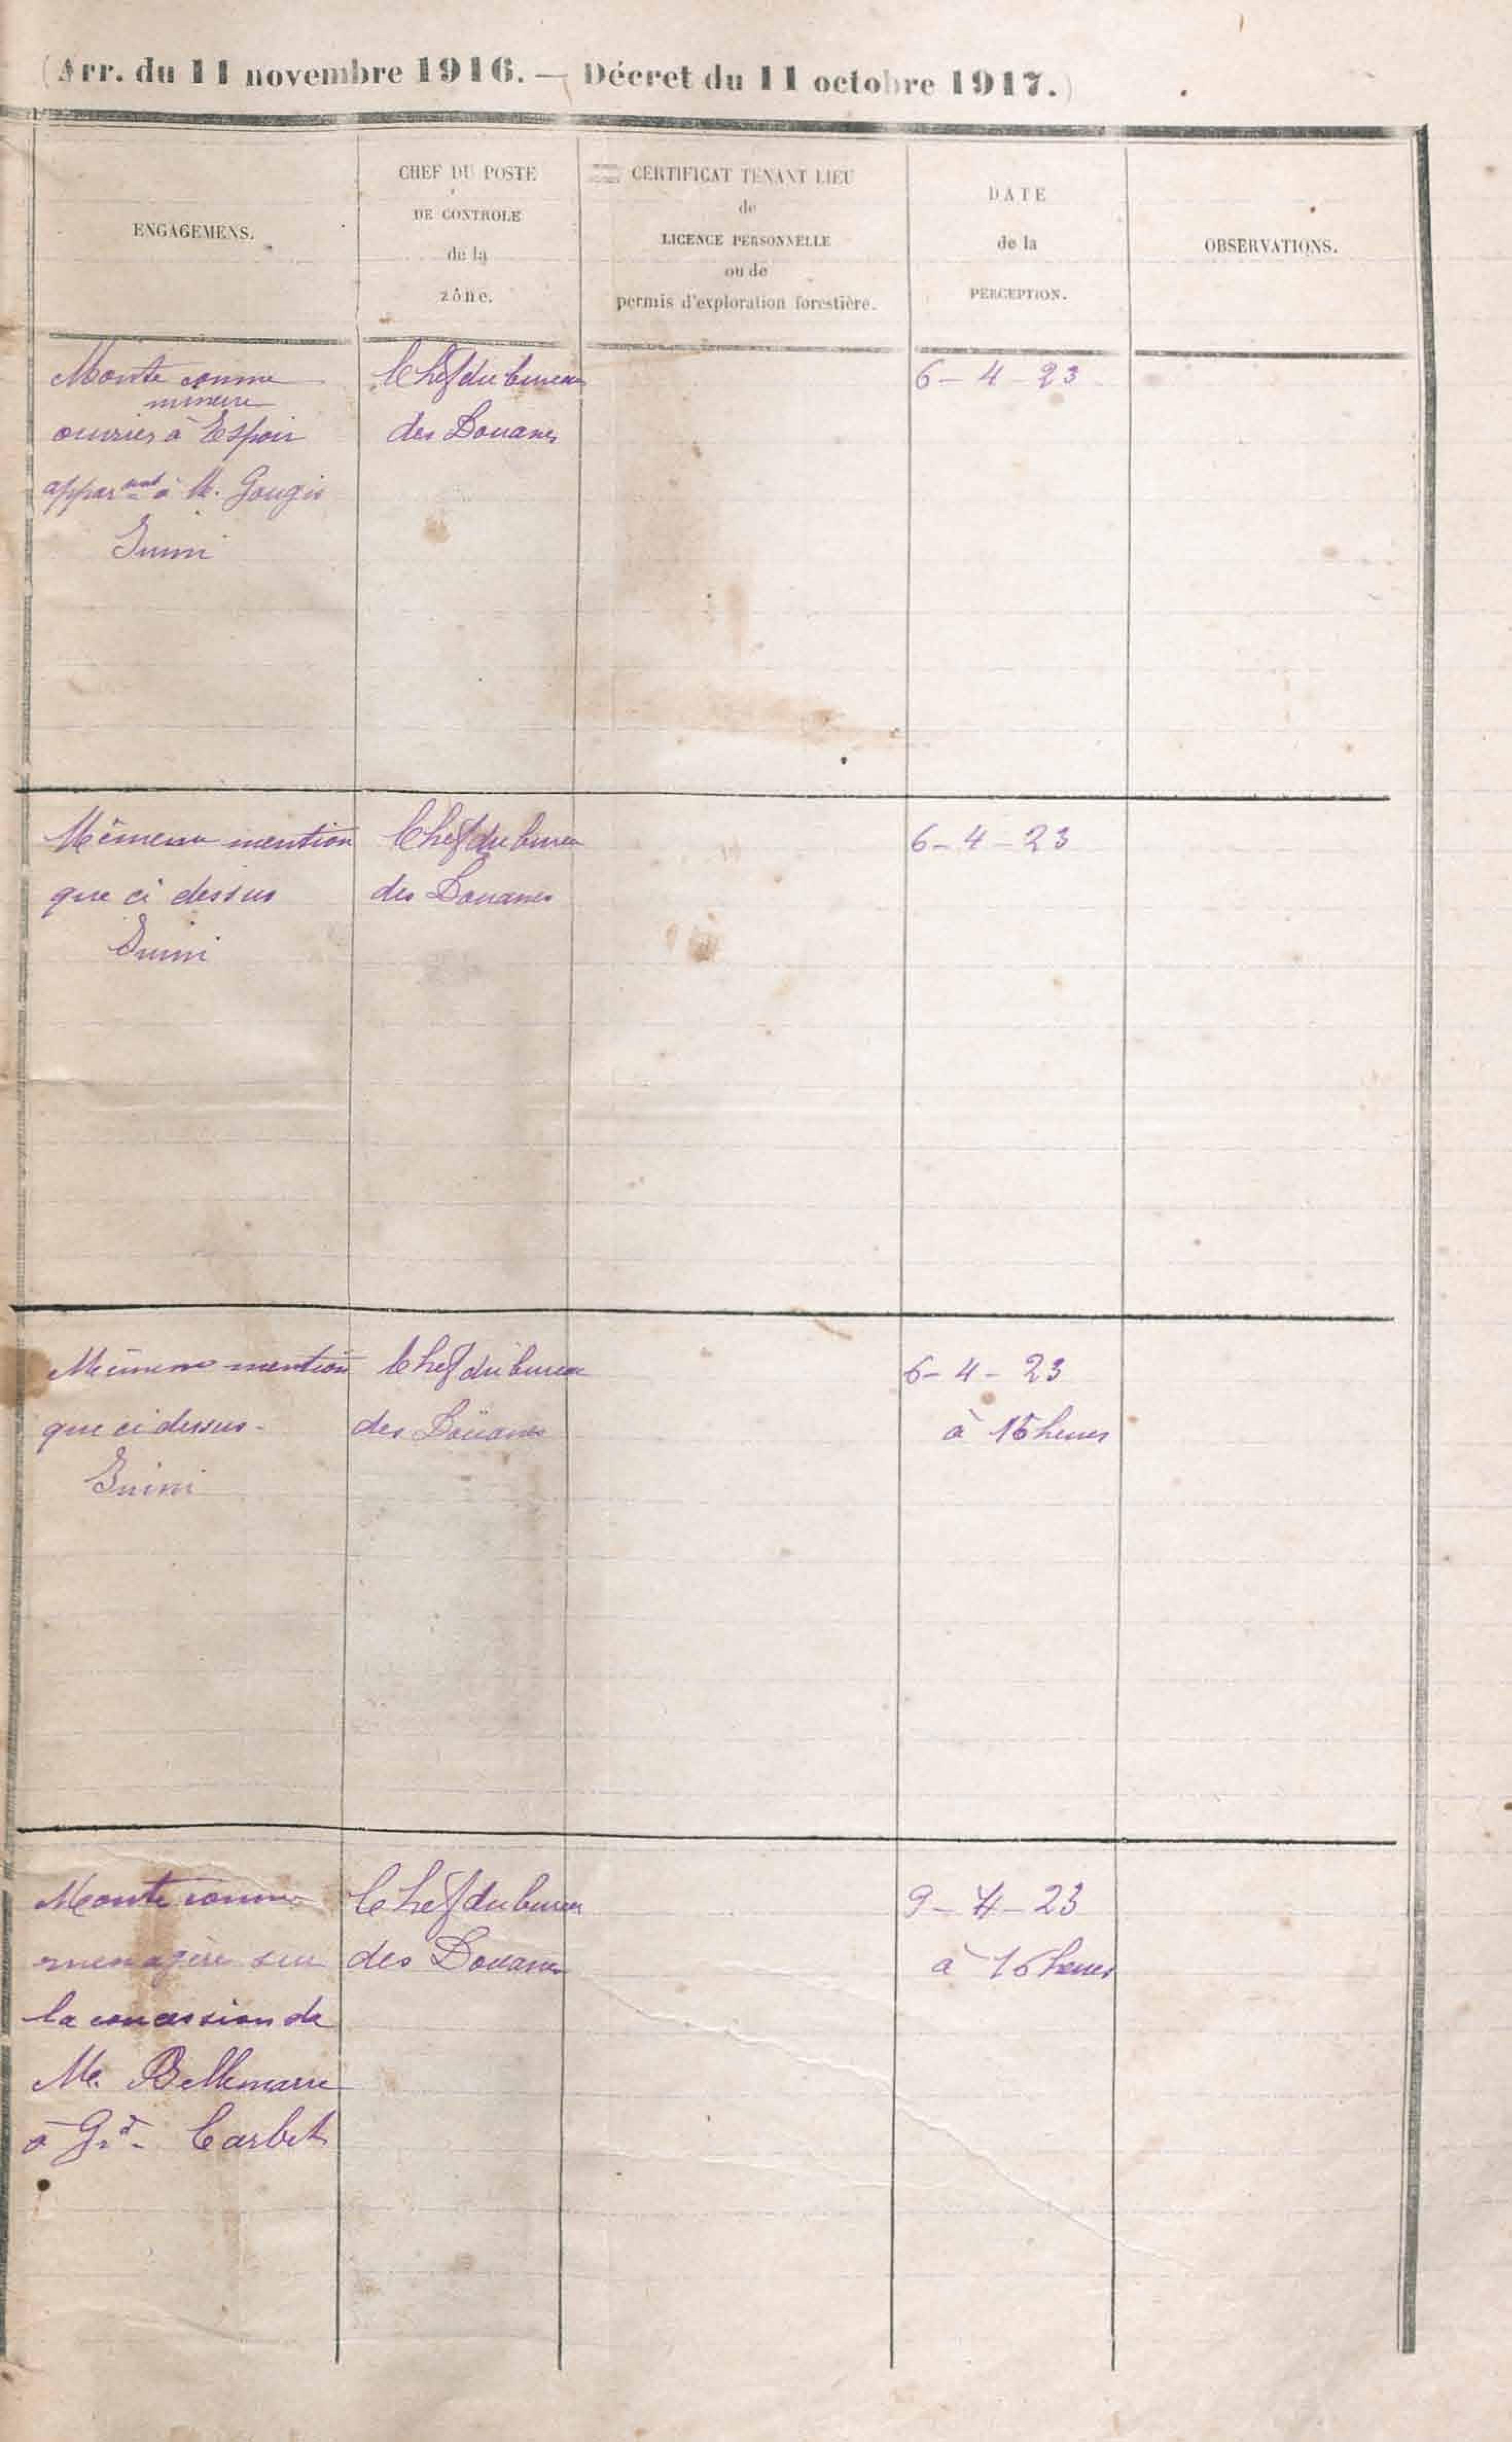 (Arr. du 11 novembre 1916. — Décret du 11 octobre 1917.)
ENGAGEMENS.
CHEF DU POSTE
DE CONTROLE
de la
zône.
CERTIFICAT TENANT LIEU
de
LICENCE PERSONNELLE
ou de
permis d'exploration forestière.
DATE
de la
PERCEPTION.
OBSERVATIONS.
Monte comme
mineur
ouvrier à Espoir
appar nt à M. Gougis
Inini
Chef du bureau
des Douanes
6-4-23
mention
que ci dessus
Inini
Chef du bureau
des Douanes
6-4-23
mention
que ci dessus-
Inini
Chef du bureau
des Douanes
6-4-23
à 15 heures
Monte comme
menagère sur
la concession de
M. Bellemarre
à Grd- Carbet
Chef du bureau
des Douanes
9-4-23
à 16 heures